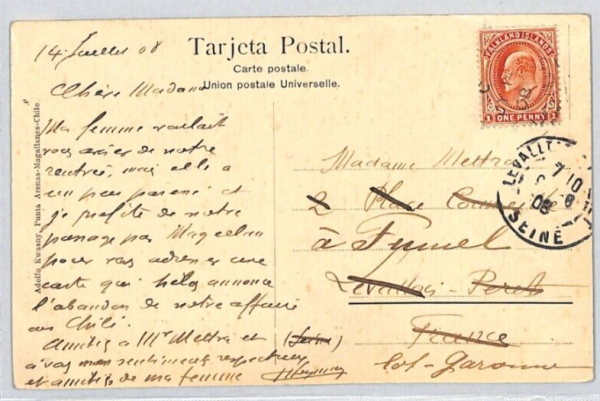 14 Juillet 08
Tarjeta Postal.
Carte postale.
Union postale Universelle.
Chère Madame
Ma femme voulait
vous aviser de notre
rentrée, mais elle a
un peu paresse et
je profite de notre
passage par Magellan
pour vous adresser une
carte qui hélas annonce
l'abandon de notre affaire
au Chili.
Amitiés à Mr Mettra et
à vous mes sentiments respectueux
et amitiés de ma femme
Adolfo Kwasny, Punta Arenas-Magallanes-Chile
FALKLAND ISLANDS
1 ONE PENNY 1
LEVALLOIS
7 10
8
08
SEINE
Madame Mettra
2 Place
à Fumel
Levallois-Perret
(Seine)
France
Lot-Garonne